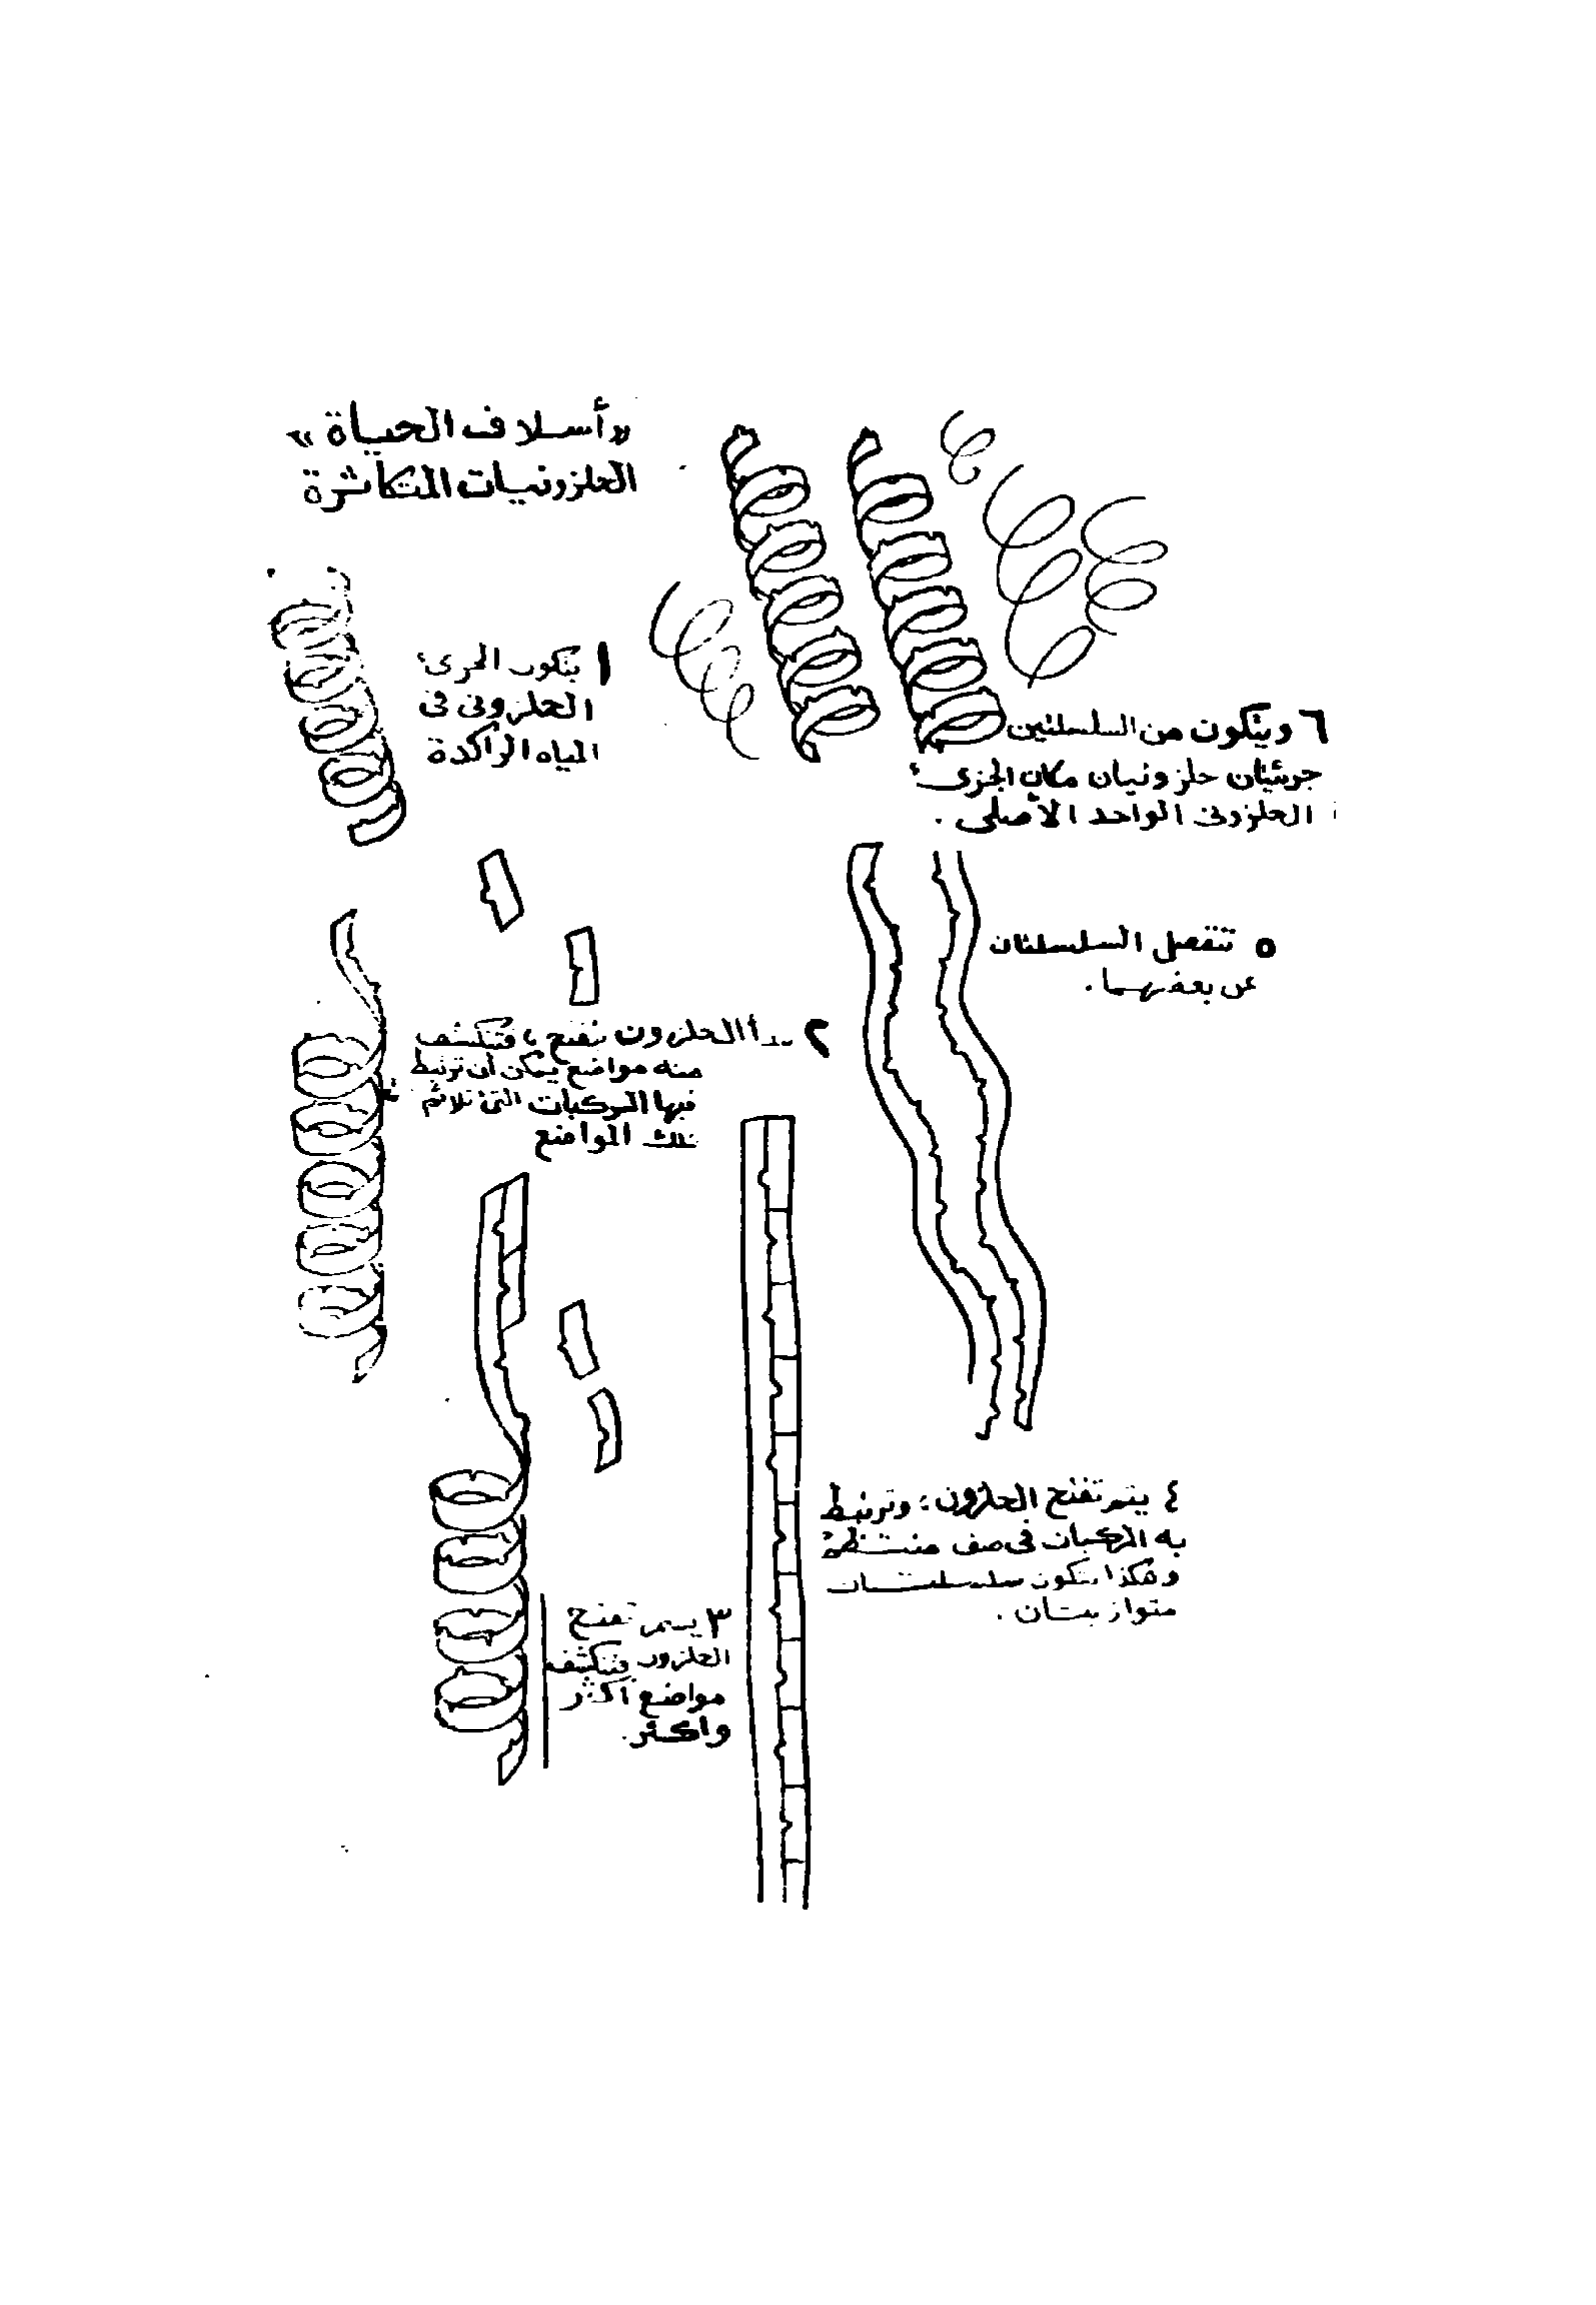 «أسلاف الحياة»
الحلزونيات المتكاثرة
١ يتكون الجزىء
الحلزونى فى
المياه الراكدة
٢ يبدأ الحلزون يتفتح ، فتنكشف
منه مواضع يمكن أن ترتبط
فيها المركبات التى تلائم
تلك المواضع
٣ يستمر تفتح
الحلزون فتنكشف
مواضع أكثر
وأكثر.
٤ يتم تفتح الحلزون ؛ وترتبط
به المركبات فى صف منتظم
وهكذا تتكون سلسلتان
متوازيتان .
٥ تنفصل السلسلتان
عن بعضهما .
٦ ويتكون من السلسلتين
جزئيان حلزونيان مكان الجزىء
الحلزونى الواحد الأصلى .